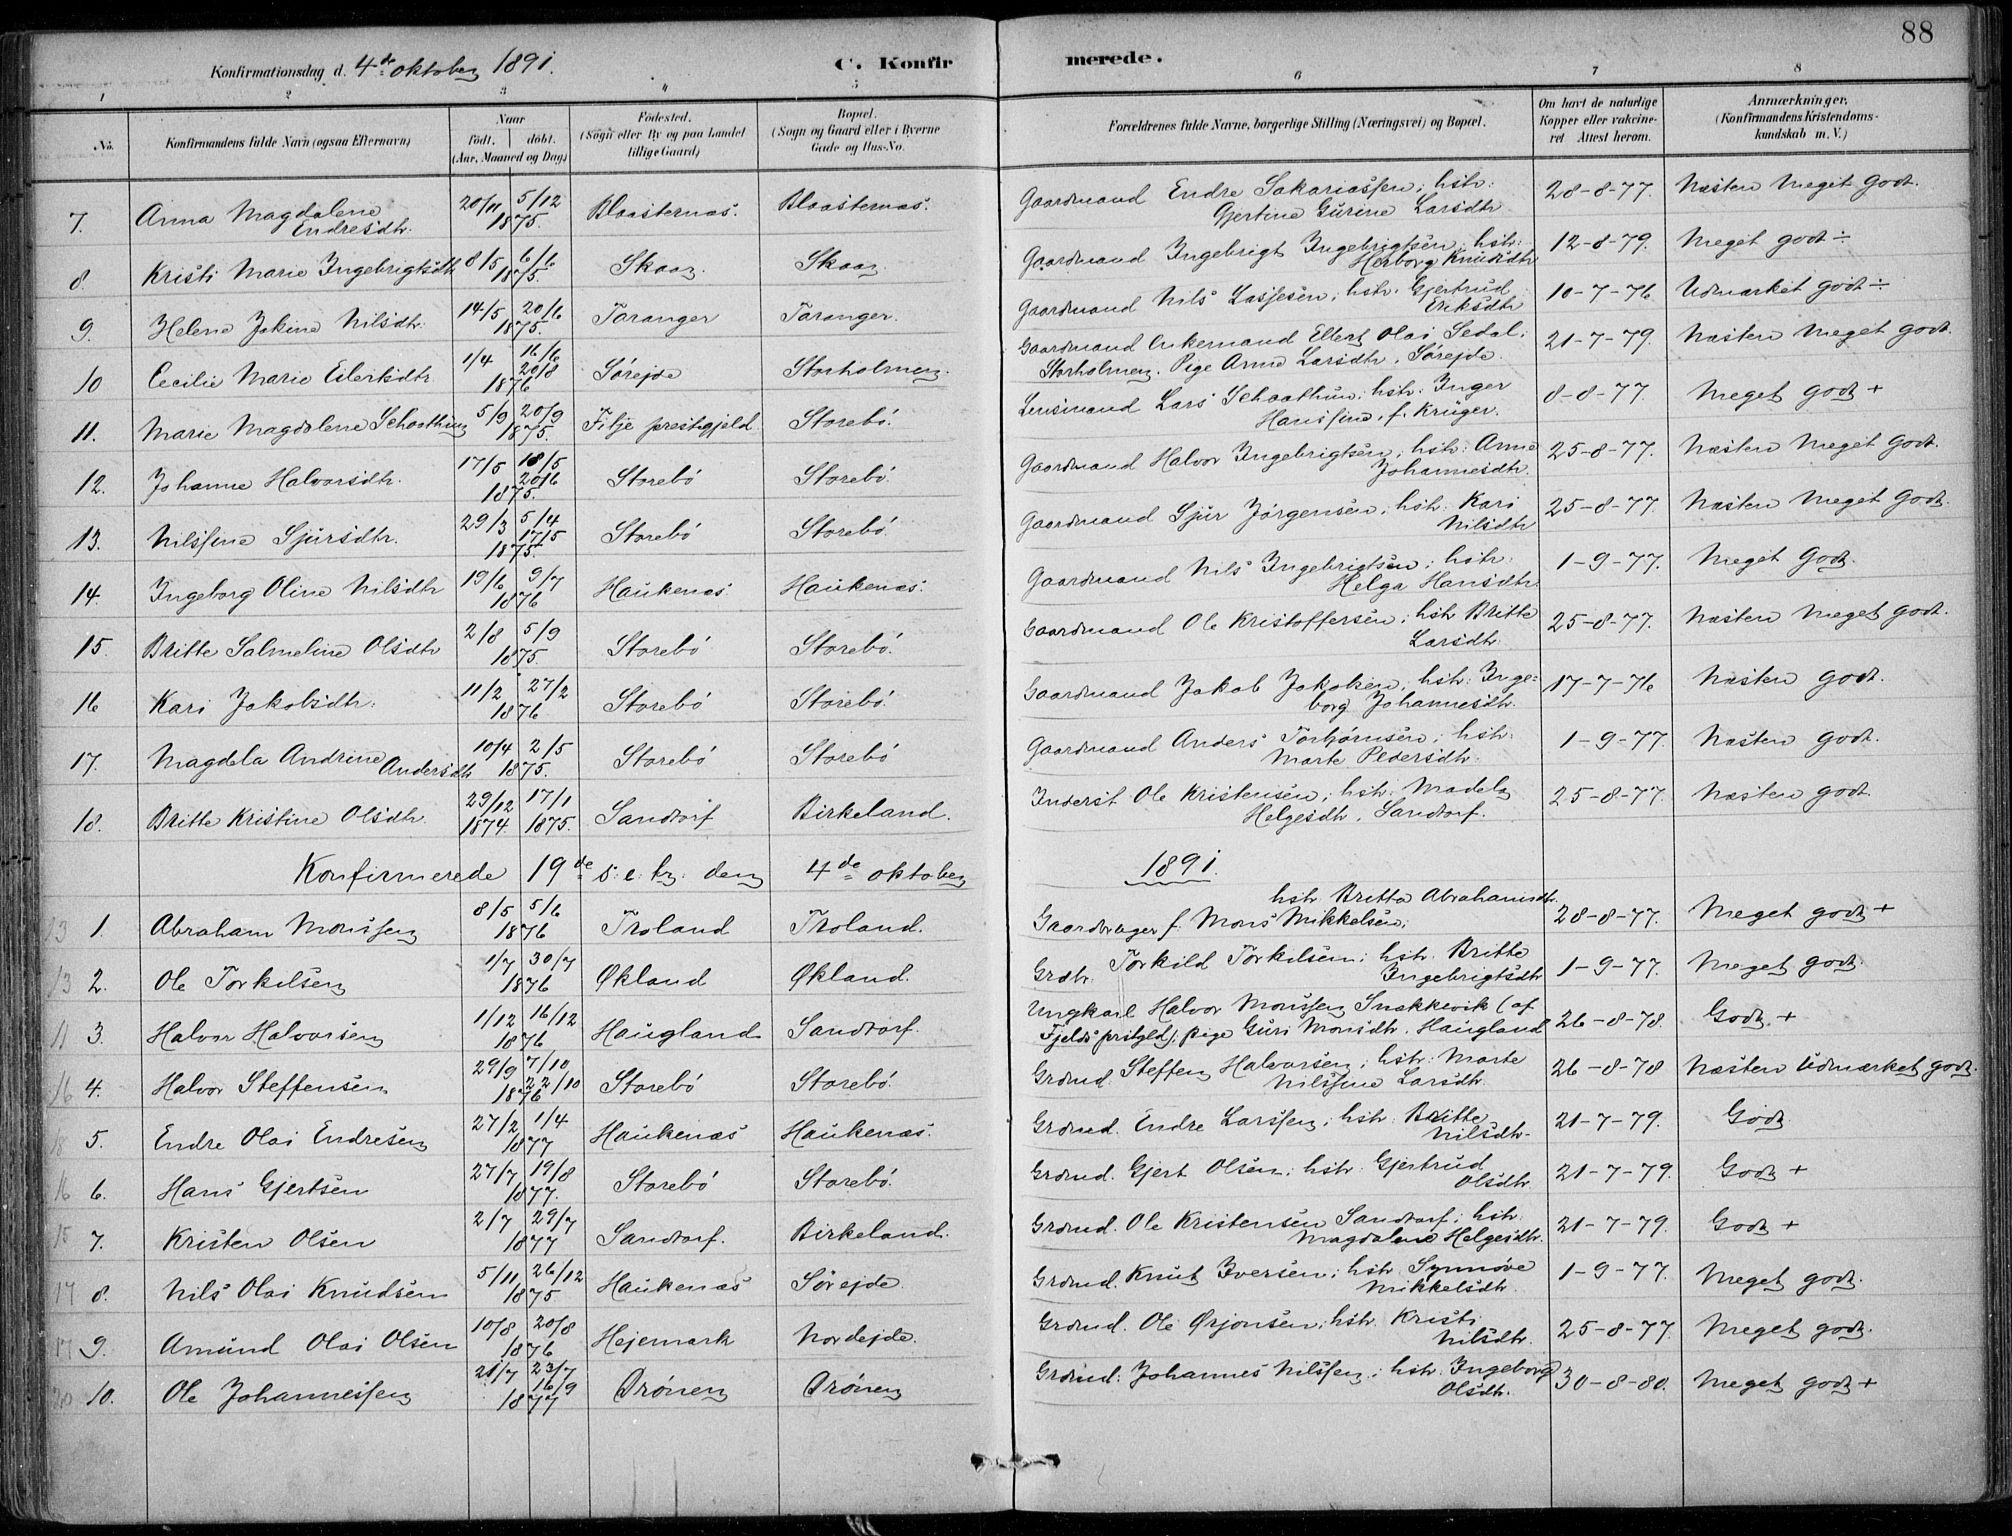 88
Konfirmationsdag d. 4de oktober 1891.
C. Konfirmerede.
1 2 3 4 5 6 7 8
No. Konfirmandens fulde Navn (ogsaa Efternavn) Naar født. døbt. (Aar, Maaned og Dag) Fødested. (Sogn eller By og paa Landet tillige Gaard) Bopæl. (Sogn og Gaard eller i Byerne Gade og Hus-No. Forældrenes fulde Navne, borgerlige Stilling (Næringsvei) og Bopæl. Om havt de naturlige Kopper eller vakcineret Attest herom. Anmærkninger, (Konfirmandens Kristendomskundskab m. V.)
7. Anna Magdalene Endresdtr. 20/11 5/12 1875. Blaasternæs. Blaasternæs. Gaardmand Endre Sakariassen; hstr: Gjertine Gurine Larsdtr 28-8-77. Næsten Meget Godt.
8. Kristi Marie Ingebrigtsdtr 8/5 6/6 1875. Skaar. Skaar. Gaardmand Ingebrigt Ingebrigtsen; hstr: Herborg Knudsdtr 12-8-79. Meget godt ÷
9. Helene Jokine Nilsdtr. 14/5 20/6 1875. Taranger Taranger. Gaardmand Nils Lasjesen; hstr. Gjertrud Eriksdtr 10-7-76 Udmærket godt ÷
10 Cecilie Marie Eilertsdtr. 1/4 16/6 20/8 1876 Sørejde Storholmen. Gaardmand Enkemand Ellert Olai Sedal; Storholmen. Pige Anne Larsdtr, Sørejde. 21-7-79. Næsten Meget Godt.
11. Marie Magdalene Schaathun 5/9 20/9 1875. Fitje prestegjeld. Storebö. Lensmand Lars Schaathun; hstr: Inger Hansine, f. Krüger. 8-8-77. Meget godt +
12. Johanne Halvorsdtr. 17/5 18/5 20/6 1875. Storebö Storebö. Gaardmand Halvor Ingebrigtsen; hstr: Anne Johannesdtr. 25-8-77. Næsten Meget Godt.
13. Nilssine Sjursdtr. 29/3 5/4 17/5 1875. Storebö Storebö. Gaardmand Sjur Jørgensen; hstr: Kari Nilsdtr 25-8-77. Næsten Meget Godt.
14. Ingeborg Oline Nilsdtr 19/6 9/7 1876 Haukenæs. Haukenæs. Gaardmand Nils Ingebrigtsen; hstr: Helga Hansdtr 1-9-77. Meget Godt.
15. Britte Salmeline Olsdtr 2/8 5/9 1875. Storebö Storebö. Gaardmand Ole Kristoffersen; hstr Britte Larsdtr. 25-8-77. Næsten Meget Godt.
16 Kari Jakobsdtr. 11/2 27/2 1876. Storebö Storebö. Gaardmand Jakob Jakobsen, hstr: Ingeborg Johannesdtr. 17-7-76 Næsten godt.
17. Magdela Andrine Andersdtr 10/4 2/5 1875. Storebö Storebö Gaardmand Anders Torbjørnsen; hstr: Marte Pedersdtr. 1-9-77. Næsten godt.
18. Britte Kristine Olsdtr. 29/12 1874. 17/1 1875. Sandtorf Birkeland. Inderst Ole Kristensen; hstr: Madela Helgesdtr, Sandtorf. 25-8-77. Næsten godt.
Konfirmerede 19de s. e. tr. den 4de oktober 1891.
1. Abraham Monssen 8/5 5/6 1876 Troland Troland. Gaardbruger f. Mons Mikkelsen; hstr Britta Abrahamsdtr. 28-8-77. Meget godt +
13 2. Ole Torkilsen 1/7 30/7 1876 Økland Økland. Grdbr. Torkild Torkilsen; hstr. Britte Ingebrigtsdtr 1-9-77. Meget godt.
11 3. Halvor Halvorsen 1/12 16/12 1876 Haugland Sandtorf. Ungkarl Halvor Monssen Snekkevik (af Fjelds prstgjld); pige Guri Monsdtr. Haugland 26-8-78. Godt. +
16 4. Halvor Steffensen 29/9 7/10 22/10 1876 Storebö Storebö. Grdmd. Steffen Halvorsen; hstr: Marte Nilssine Larsdtr. 26-8-78 Næsten Udmærket godt.
18 5. Endre Olai Endresen 27/2 1/4 1877 Haukenæs Haukenæs. Grdmd. Endre Larssen; hstr: Britte Nilsdtr. 21-7-79. Godt
16 6. Hans Gjertsen 27/7 19/8 1877. Storebö Storebö. Grdmd. Gjert Olsen; hstr: Gjertrud Olsdtr. 21-7-79. Godt +
15 7. Kristen Olsen 2/7 29/7 1877 Sandtorf. Birkeland. Grdmd. Ole Kristensen Sandtorf; hstr. Magdalena Helgesdtr. 21-7-79. Godt +
17 8. Nils Olai Knudsen 5/11 26/12 1875 Haukenæs Sørejde. Grdmd. Knut Iversen; hstr Synnøve Mikkelsdtr. 1-9-77. Meget godt.
17 9. Amund Olai Olsen 10/8 20/8 1876 Hejemark Nordejde. Grdmd. Ole Ørjonsen; hstr. Kristi Nilsdtr. 25-8-77. Meget godt.
20 10. Ole Johannessen 21/7 23/7 16/9 1877 Drönen Drönen Grdmd. Johannes Nilssen; hstr. Ingeborg Olsdtr. 30-8-80. Meget godt +